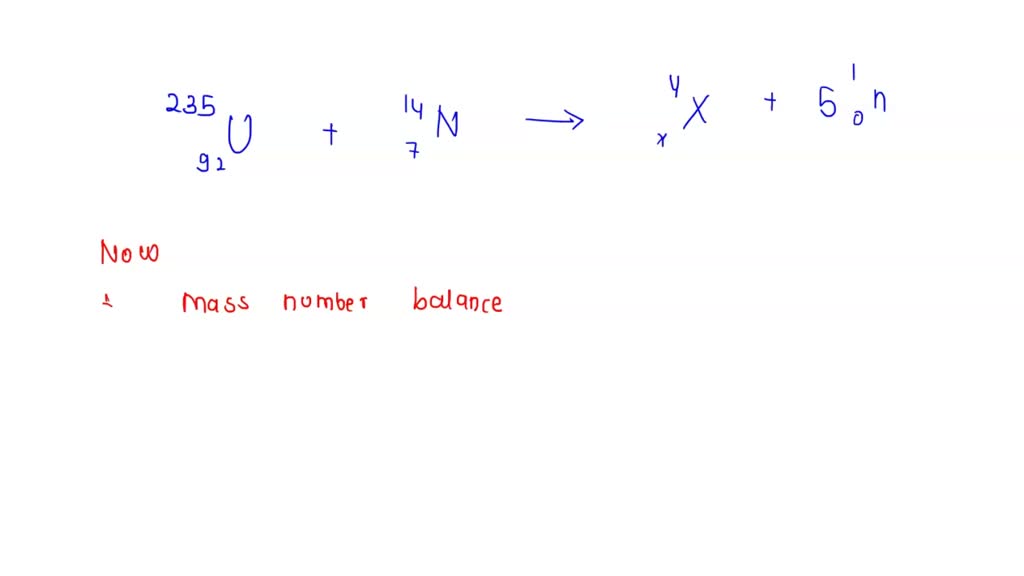 ²³⁵₉₂U + ¹⁴₇N → ʸₓX + 5 ¹₀n
Now
1 Mass number balance